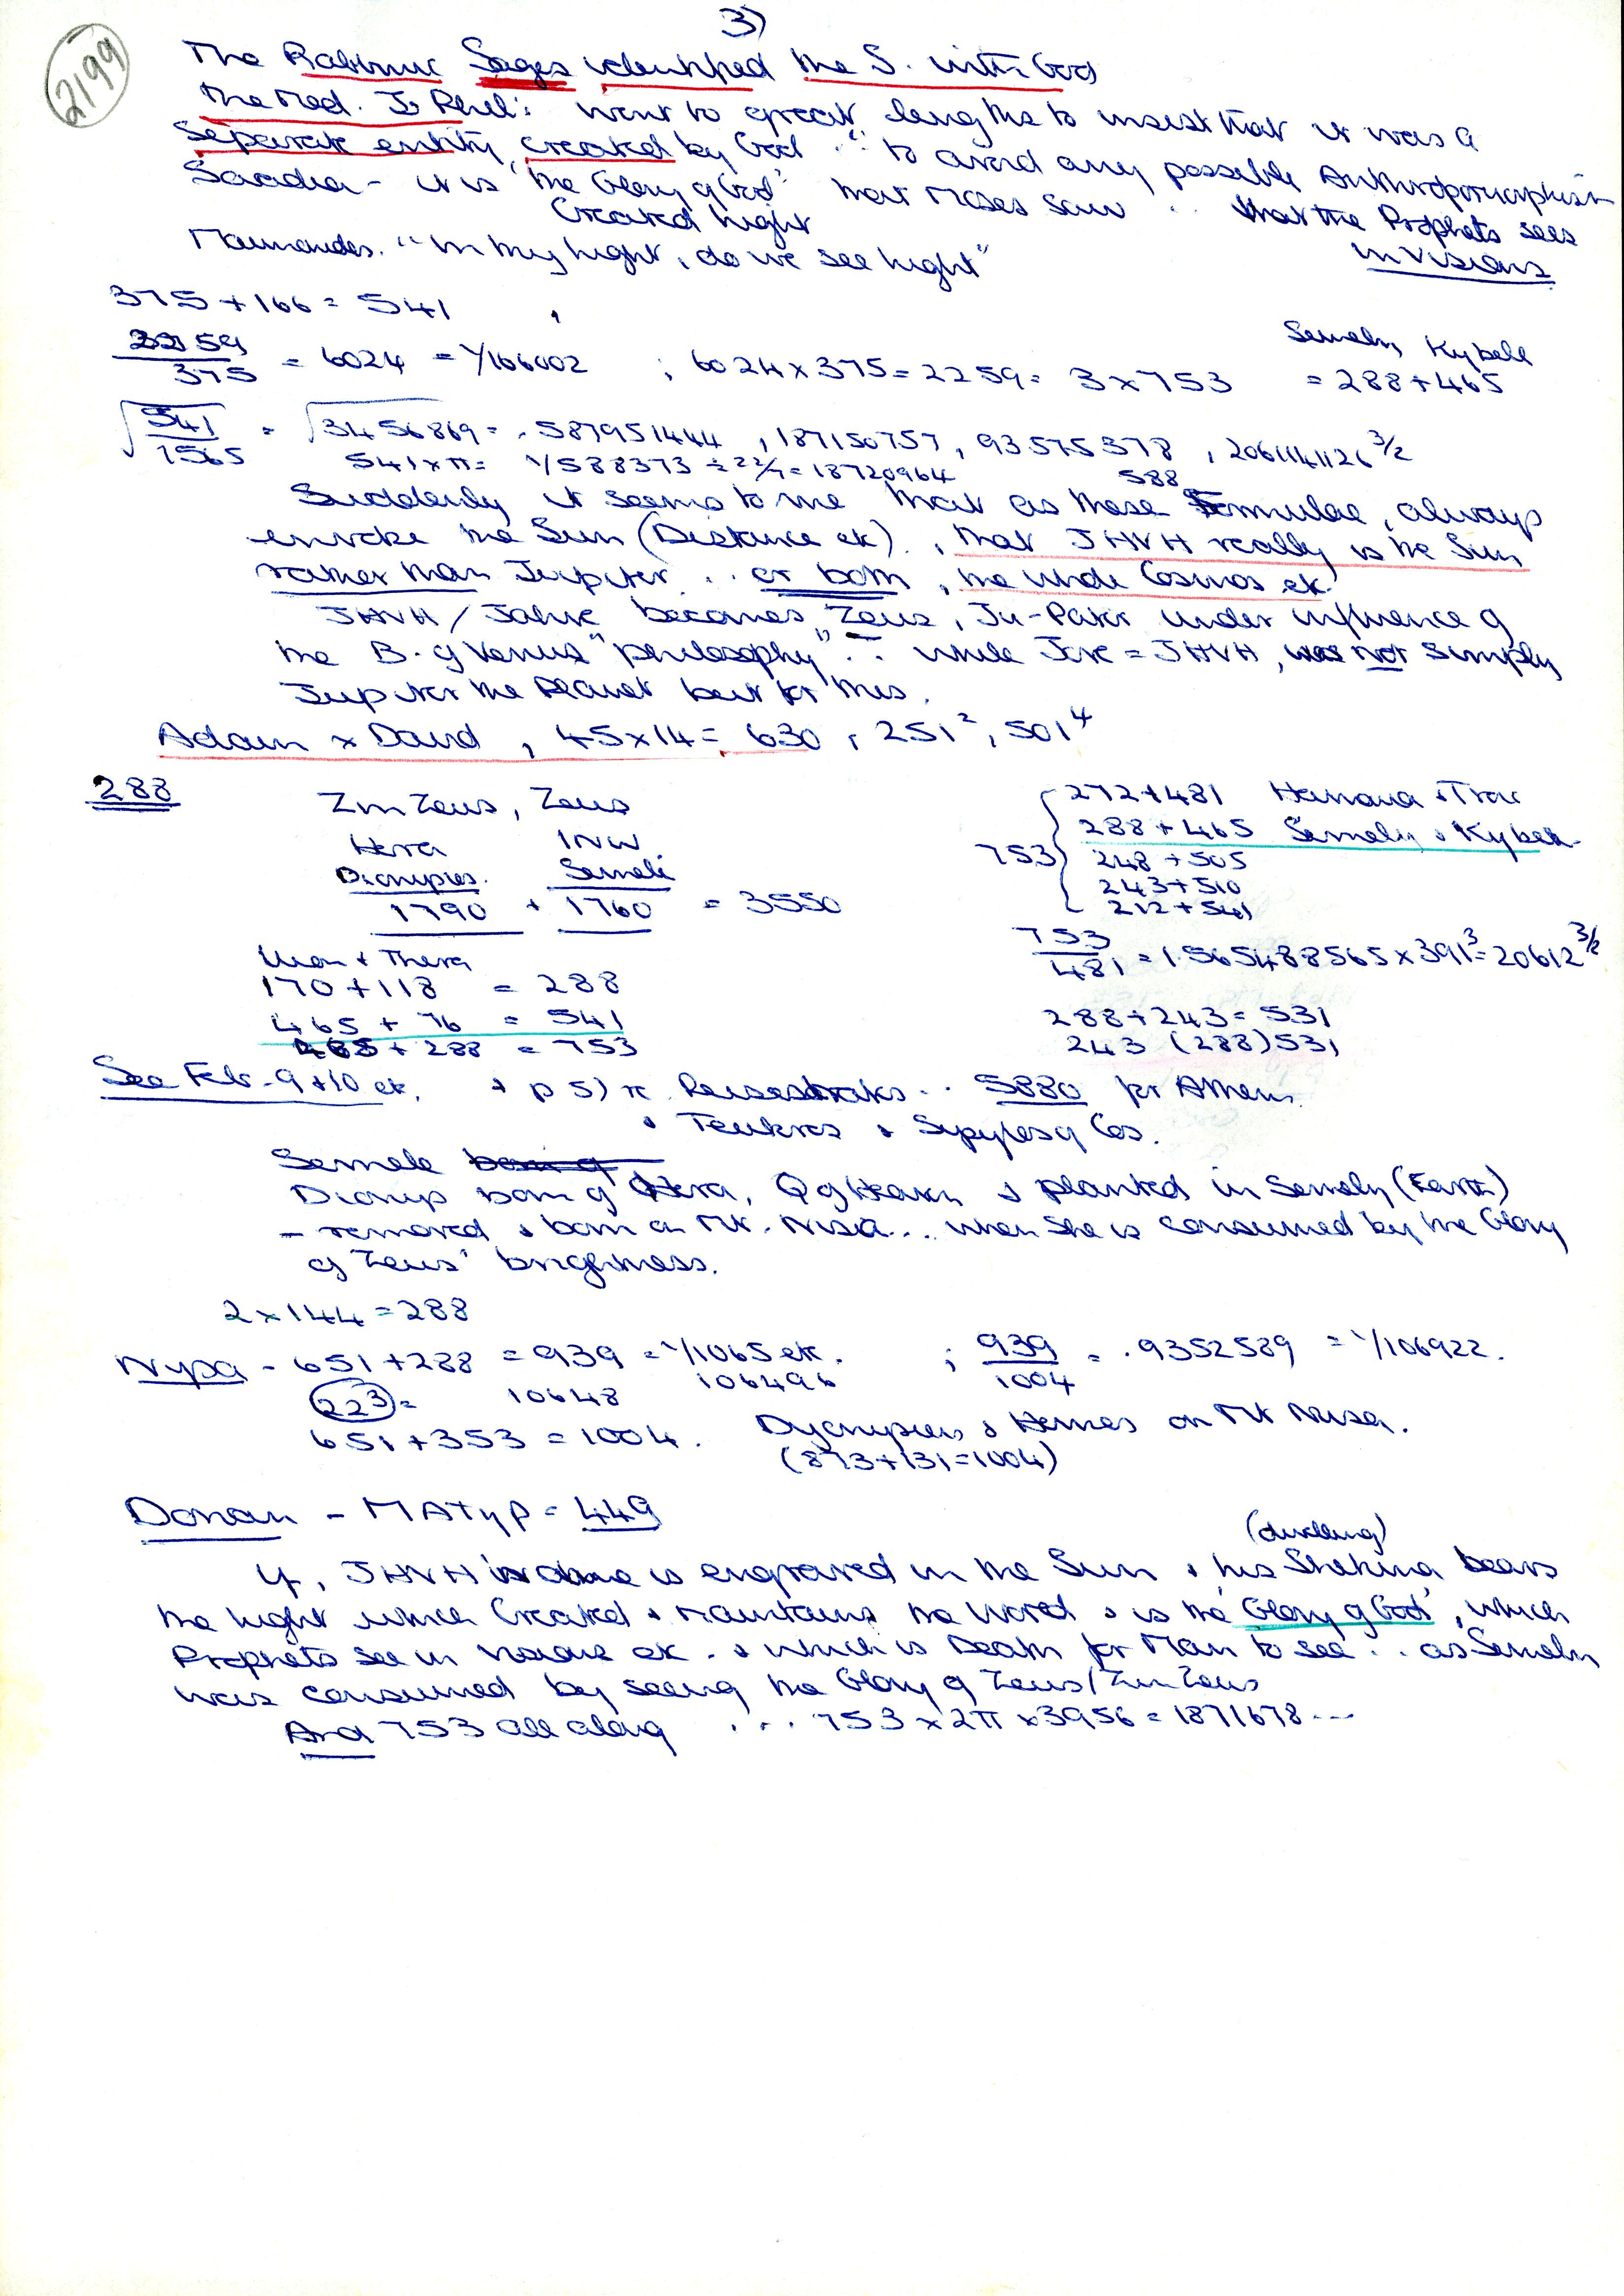 3)
2199
The Rabbinic Sages identified the S. with God
The Med. J. Phil's went to great lengths to insist that it was a
separate entity, created by God ∵ to avoid any possible Anthropomorphism
Saadia - it is 'the Glory of God' that Moses saw .. that the Prophets sees
Created Light in visions
Maimonides. "In thy light, do we see light"
375 + 166 = 541
Semely Kybele
2259/375 = 6024 = 1/166002 ; 6024 x 375 = 2259 = 3 x 753 = 288 + 465
√541/1565 = √3456869 = .587951444 , 187150757, 93575378 , 2061141126 3/2
541 x π = 1/588373 ÷ 22/7 = 18720964
588
Suddenly it seems to me that as these Formulae, always
envoke the Sun (Distance etc). , that JHVH really is the Sun
rather than Jupiter .. or both, the whole Cosmos etc.
JHVH / Jahve becomes Zeus, Ju-Pater under influence of
the B. of Venus "philosophy" ∴ while Jove = JHVH, was not simply
Jupiter the Planet but for this.
Adam x David , 45 x 14 = 630 , 251², 501⁴
288
Zin Zeus, Zeus
Hera INW.
Dionysies. Semele
1790 + 1760 = 3550
753 { 272 + 481
288 + 465 Semely & Kybele
248 + 505
243 + 510
212 + 541
753/481 = 1.565488565 x 391³ = 20612 3/2
& Thera
170 + 118 = 288
465 + 76 = 541
465 + 288 = 753
288 + 243 = 531
243 (288) 531
See Feb - 9 + 10 etc. & p 5) re 5880 for Athens.
& Teukros & of Cos.
Semele
Dionys born of Hera, Q of Heaven & planted in Semely (Earth)
- removed & born on Mt. Nisa... when she is consumed by the Glory
of Zeus' brightness.
2 x 144 = 288
Nysa - 651 + 288 = 939 = 1/1065 etc. ; 939/1004 = .9352589 = 1/106922.
22³ = 10648 106496
651 + 353 = 1004. Dyonysies & Hermes on Mt Nusa.
(873 + 131 = 1004)
- MATyp = 449
(dwelling)
If, JHVH is engraved in the Sun & his Shekina bears
the light which Created & Maintains the World & is the 'Glory of God', which
Prophets see in etc. & which is Death for Man to see .. as Semely
was consumed by seeing the Glory of Zeus / Zin Zeus
And 753 all along ... 753 x 2π x 3956 = 1871678 ---